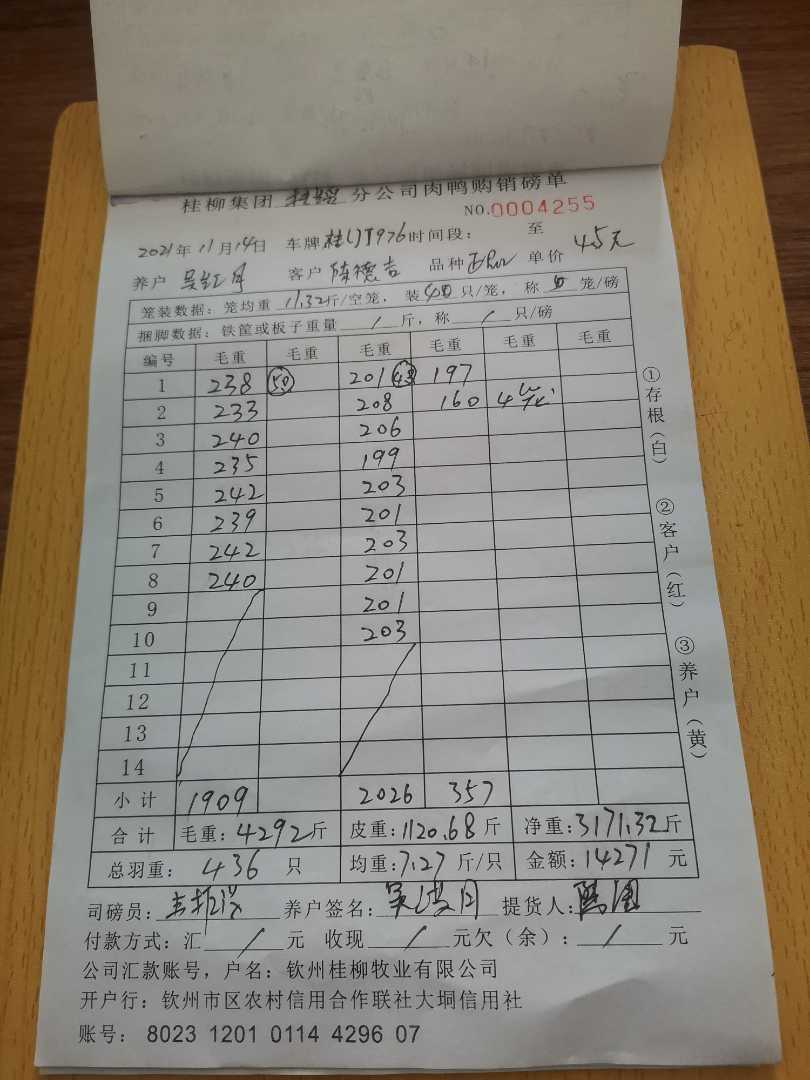 桂柳集团 分公司肉鸭购销磅单
NO.0004255
2021年11月14日 车牌 976 时间段： 至
养户 客户 陈德吉 品种 单价 4.5元
笼装数据：笼均重 11.32斤/空笼，装 只/笼，称 笼/磅
捆脚数据：铁筐或板子重量 / 斤，称 / 只/磅
编号 毛重 毛重 毛重 毛重 毛重 毛重
1 238 50 201 48 197
2 233 208 160 4
3 240 206
4 235 199
5 242 203
6 239 201
7 242 203
8 240 201
9 201
10 203
11
12
13
14
小计 1909 2026 357
合计 毛重：4292斤 皮重：1120.68斤 净重：3171.32斤
总羽重： 436 只 均重：7.27斤/只 金额：14271元
司磅员： 养户签名： 提货人：
付款方式：汇 / 元 收现 / 元欠（余）： / 元
公司汇款账号，户名：钦州桂柳牧业有限公司
开户行：钦州市区农村信用合作联社大垌信用社
账号：8023 1201 0114 4296 07
①存根（白）
②客户（红）
③养户（黄）